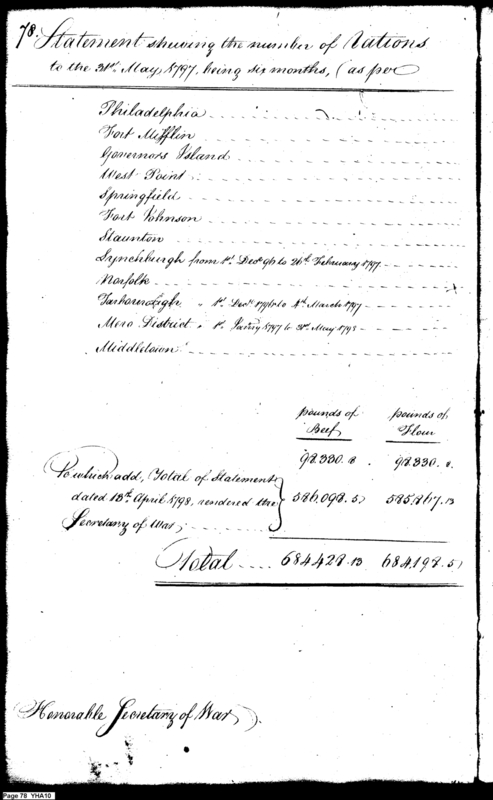 78. Statement shewing the number of Rations
to the 31st May, 1797, being six months, (as per
Philadelphia
Fort Mifflin
Governors Island
West Point
Springfield
Fort Johnson
Staunton
Lynchburgh from 1st Decr 96 to 26th February 1797
Norfolk
" 1st Decr 1796 to 4th March 1797
Mero District " 1st Janry 1797 to 31st May 1798
Middletown
pounds of pounds of
Beef Flour
98330.8. 98330.8.
To which add, Total of Statement
dated 13th April 1798, rendered the } 586,098.5 585,867.13
Secretary of War
Total 684428.13 684,198.5
Honorable Secretary of War
Page 78 YHA10